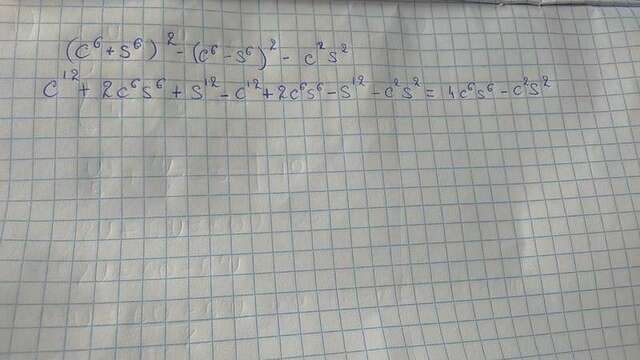 (c⁶+s⁶)² - (c⁶-s⁶)² - c²s²
c¹² + 2c⁶s⁶ + s¹² - c¹² + 2c⁶s⁶ - s¹² - c²s² = 4c⁶s⁶ - c²s²